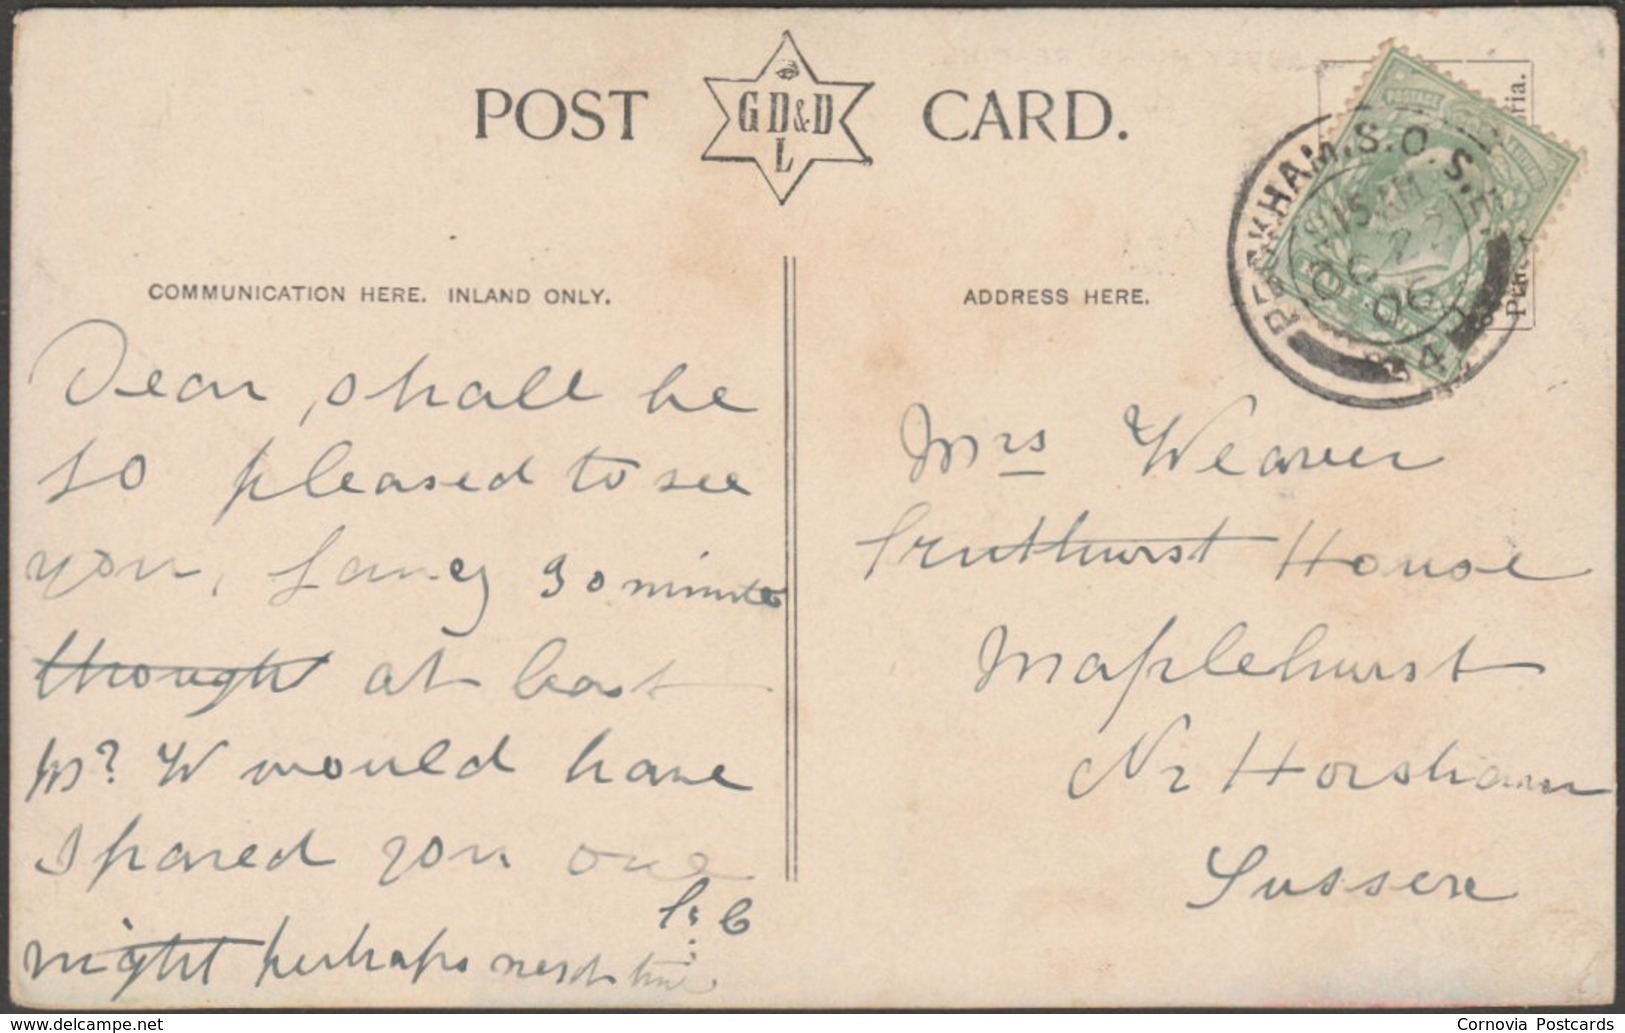 POST CARD.
GD&D
L
COMMUNICATION HERE. INLAND ONLY.
ADDRESS HERE.
PECKHAM.S.O. S.E.
11 15 AM
OC 22
06
34
Dear, shall be
so pleased to see
you, Fancy 30 minutes
thought at least
W would have
spared you one
night perhaps next time
Mrs Weaver
Truthurst House
Maplehurst
Nr Horsham
Sussex
delcampe.net
Cornovia Postcards